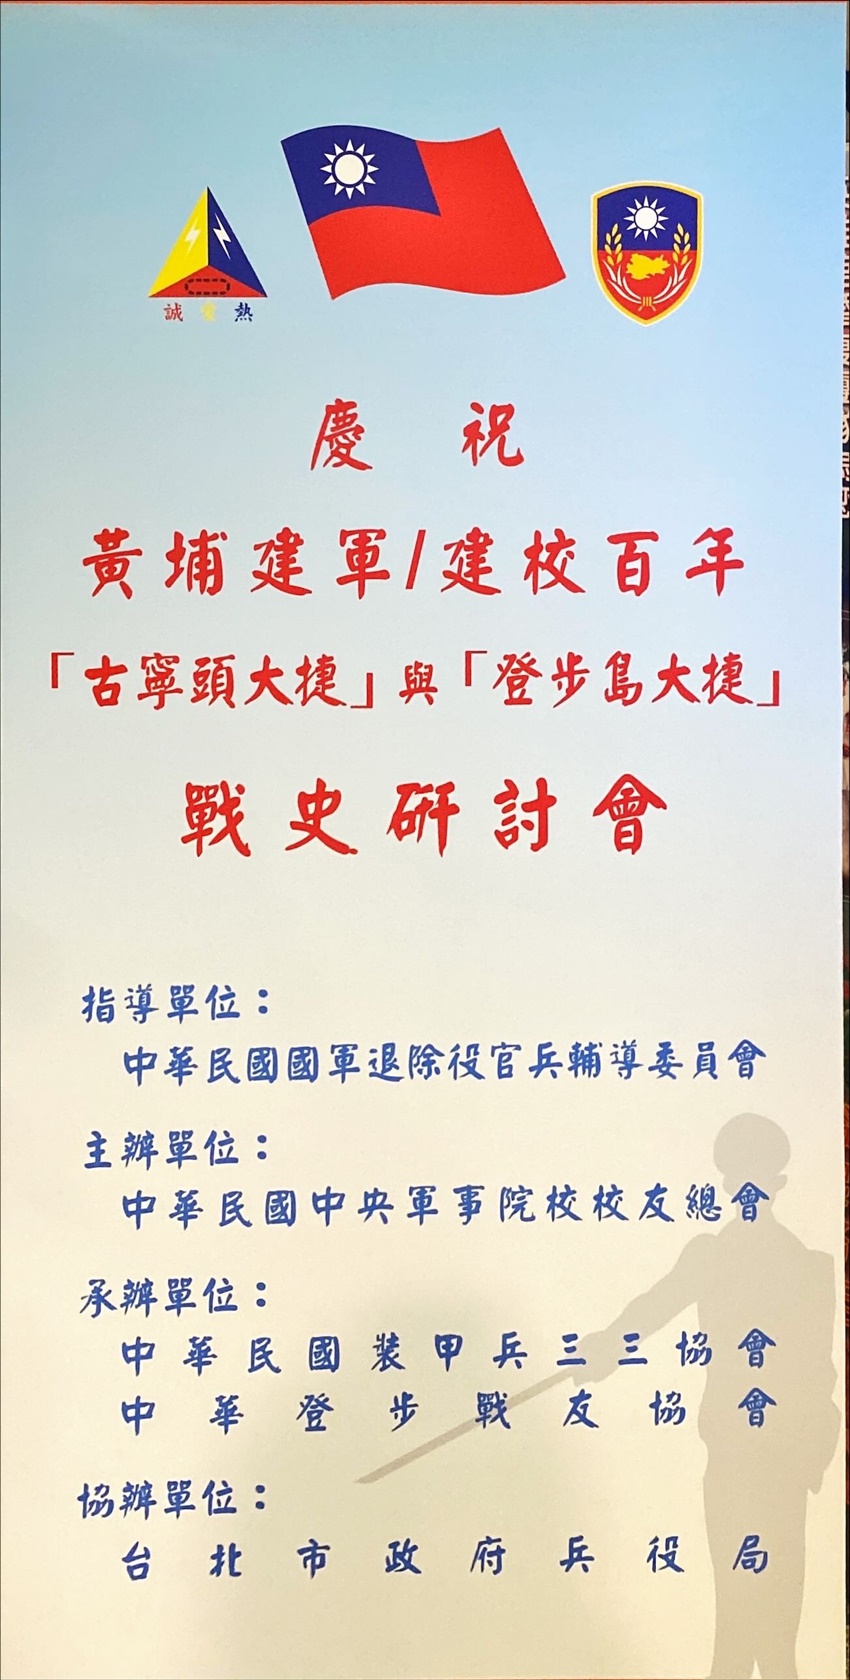 誠 愛 熱
慶 祝
黃埔建軍/建校百年
「古寧頭大捷」與「登步島大捷」
戰史研討會
指導單位：
中華民國國軍退除役官兵輔導委員會
主辦單位：
中華民國中央軍事院校校友總會
承辦單位：
中華民國裝甲兵三三協會
中華登步戰友協會
協辦單位：
台北市政府兵役局